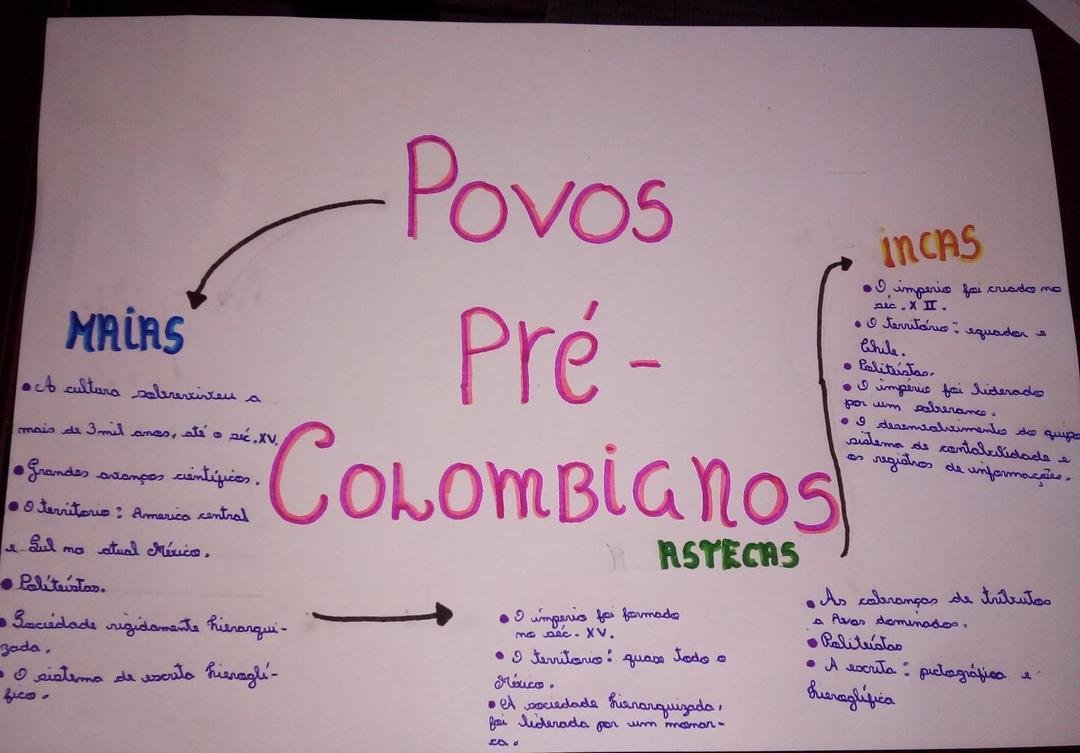 Povos
Pré-
Colombianos
MAIAS
• A cultura sobreviveu a
mais de 3mil anos, até o séc. XV.
• Grandes avanços científicos.
• O territorio: America central
e Sul no atual México.
• Politeístas.
• Sociedade rigidamente hierarqui-
zada.
• O sistema de escrita hieroglí-
fico.
ASTECAS
• O império foi formado
no séc. XV.
• O territorio: quase todo o
México.
• A sociedade hierarquizada,
foi liderada por um monar-
ca.
• As cobranças de tributos
a Povos dominados.
• Politeístas
• A escrita: pictográfica e
hieroglífica
INCAS
• O imperio foi criado no
séc. XII.
• O território: equador e
Chile.
• Politeístas.
• O império foi liderado
por um soberano.
• O desenvolvimento do quipo
sistema de contabilidade e
os registros de informações.